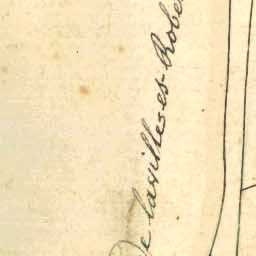 De lavilleses-Robe